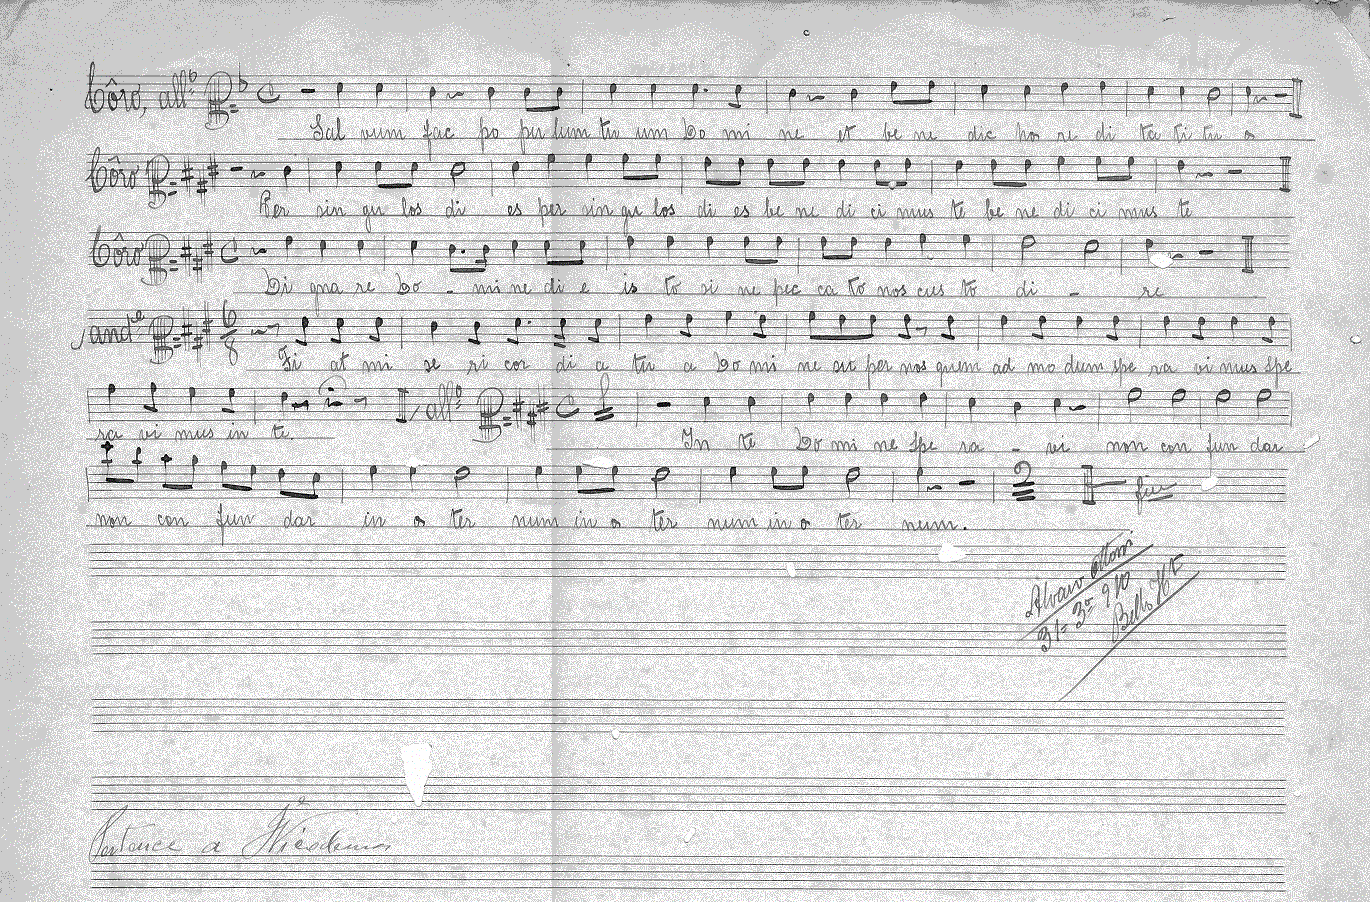 Côro, allº Sal vum fac po pu lum tu um Do mi ne et be ne dic hœ re di ta ti tu œ
Côro Per sin gu los di es per sin gu los di es be ne di ci mus te be ne di ci mus te
Côro Di gna re Do - mi ne di e is to si ne pec ca to nos cus to di - re
andᵉ 6/8 Fi at mi se ri cor di a tu a Do mi ne su per nos quem ad mo dum spe ra vi mus spe
ra vi mus in te. allº In te Do mi ne spe ra - vi non con fun dar
non con fun dar in œ ter num in œ ter num in œ ter num. fim
Alvaro Ottoni
31= 3º 910
Bello H
Pertence a Nicodemos